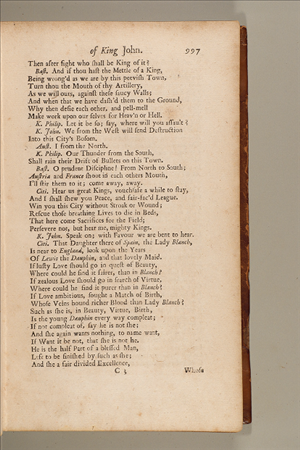 of King John. 997
Then after fight who shall be King of it?
Bast. And if thou hast the Mettle of a King,
Being wrong'd as we are by this peevish Town,
Turn thou the Mouth of thy Artillery,
As we will ours, against these sawcy Walls;
And when that we have dash'd them to the Ground,
Why then defie each other, and pell-mell
Make work upon our selves for Heav'n or Hell.
K. Philip. Let it be so; say, where will you assault?
K. John. We from the West will send Destruction
Into this City's Bosom.
Aust. I from the North.
K. Philip. Our Thunder from the South,
Shall rain their Drift of Bullets on this Town.
Bast. O prudent Discipline! From North to South;
Austria and France shoot in each others Mouth,
I'll stir them to it; come away, away.
Citi. Hear us great Kings, vouchsafe a while to stay,
And I shall shew you Peace, and fair-fac'd League.
Win you this City without Stroak or Wound;
Rescue those breathing Lives to die in Beds,
That here come Sacrifices for the Field;
Persevere not, but hear me, mighty Kings.
K. John. Speak on; with Favour we are bent to hear.
Citi. That Daughter there of Spain, the Lady Blanch,
Is near to England, look upon the Years
Of Lewis the Dauphin, and that lovely Maid.
If lusty Love should go in quest of Beauty,
Where could he find it fairer, than in Blanch?
If zealous Love should go in search of Virtue,
Where could he find it purer than in Blanch?
If Love ambitious, sought a Match of Birth,
Whose Veins bound richer Blood than Lady Blanch?
Such as she is, in Beauty, Virtue, Birth,
Is the young Dauphin every way compleat;
If not compleat of, say he is not she;
And she again wants nothing, to name want,
If Want it be not, that she is not he.
He is the half Part of a blessed Man,
Left to be finished by such as she;
And she a fair divided Excellence,
C 3 Whose